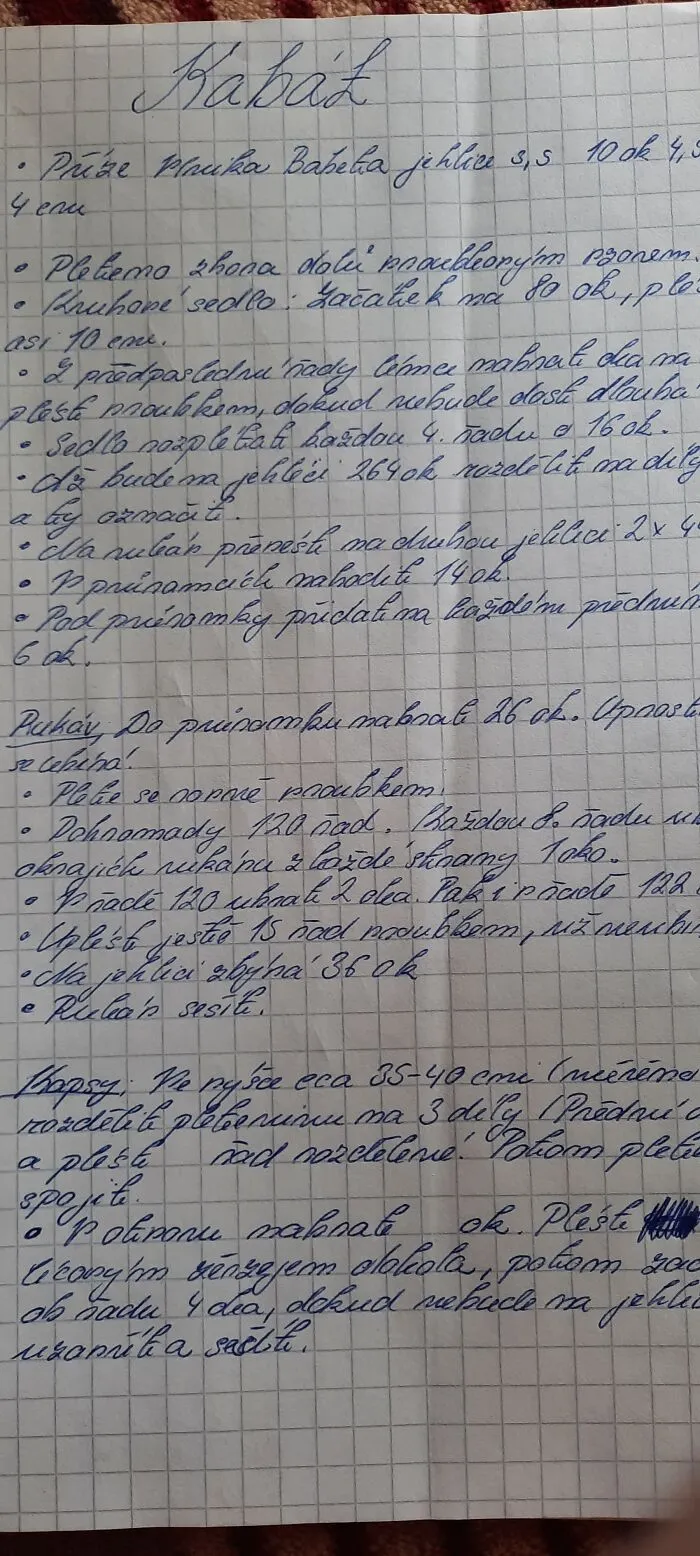 Kabát
• Příze Vlnika Babeta jehlice 5,5 10 ok 4,5
4 cm
• Pleteme zhora dolů vroubkovým vzorem.
• Kruhové sedlo: Začátek na 80 ok, plé
asi 10 cm.
• Z předposlední řady lémce nabrat oka na
plést vroubkem, dokud nebude dost dlouhá
• Sedlo rozplétat každou 4. řadu o 16 ok.
• Až bude na jehlici 264 ok rozdělit na díly
a ty označit.
• Na rukáv přenést na druhou jehlici 2 x 44
• V průramcích nahodit 14 ok.
• Pod průramky přidat na každém předním
6 ok.
Rukáv, Do průramku nabrat 26 ok. Uprost
se ubírá!
• Plete se rovně vroubkem.
• Dohromady 120 řad. Každou 8. řadu u
okrajích rukávu z každé strany 1 oko.
• V řadě 120 ubrat 2 oka. Pak i v řadě 122
• Uplést ještě 15 řad vroubkem, už neubír
• Na jehlici zbývá 36 ok
• Rukáv sešít.
Kapsy: Ve výšce cca 35-40 cm (měřeno
rozdělit pleteninu na 3 díly (Přední d
a plést řad rozděleně! Potom plete
spojit.
• V otvoru nabrat ok. Plést
lícovým žerzejem dokola, potom zač
ob řadu 4 oka, dokud nebude na jehlic
uzavřít a sešít.